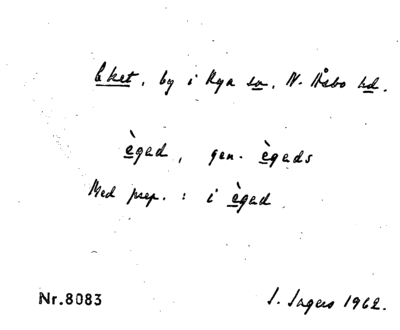 Eket, by i Rya sn, N. Åsbo hd.
ègad, gen. ègads
Med prep. : i ègad
Nr.8083
1962.